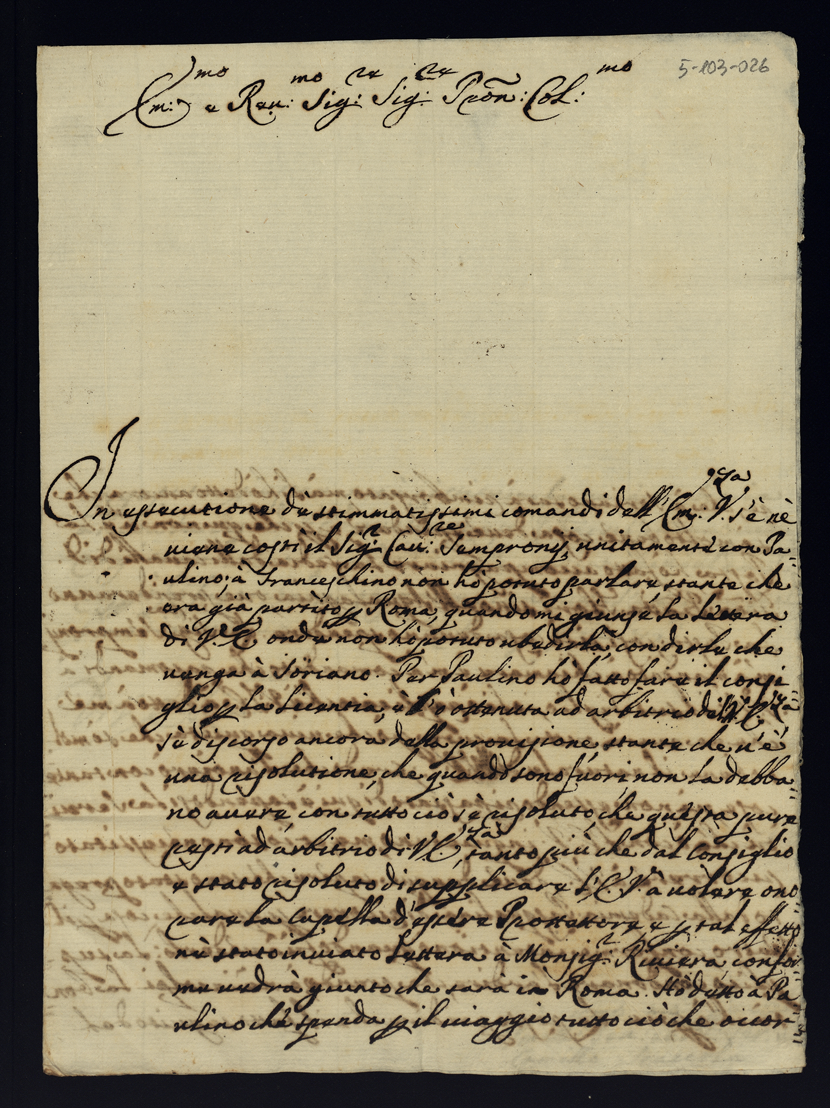 5-103-026
Em:mo e Reu:mo Sig:re Sig:re Pron: Col:mo
In essecutione dè stimmatissimi comandi dell'Em:za V. s'è nè
viene costì il Sig:r Cau:re Sempronij, unitamente con Pa=
ulino; à Franceschino non hò potuto parlare, stante che
era già partito p Roma, quando mi giunse la lettera
di V. E. onde non hò potuto ubedirla, con dirle che
venga à Soriano. Per Paulino hò fatto fare il consi=
glio p la licentia, e l'ò ottenuta ad arbitrio di V. E.za
s'è discorso ancora della provisione, stante che n'è
una risolutione, che quando sono fuori non la debba=
no auere, con tutto ciò s'è risoluto, che questa pure
resti ad arbitrio di V. E.za, tanto più che dal Consiglio
è stato risoluto di supplicare l'E. V. à volere ono=
rare la Capella d'essere Prottettore, e p tal effetto
n'è stato inuiato lettera à Monsig:r Riviera, confor=
me uedrà giunto che sarà in Roma. Hò detto à Pa=
ulino che spenda p il viaggio tutto ciò che occor=